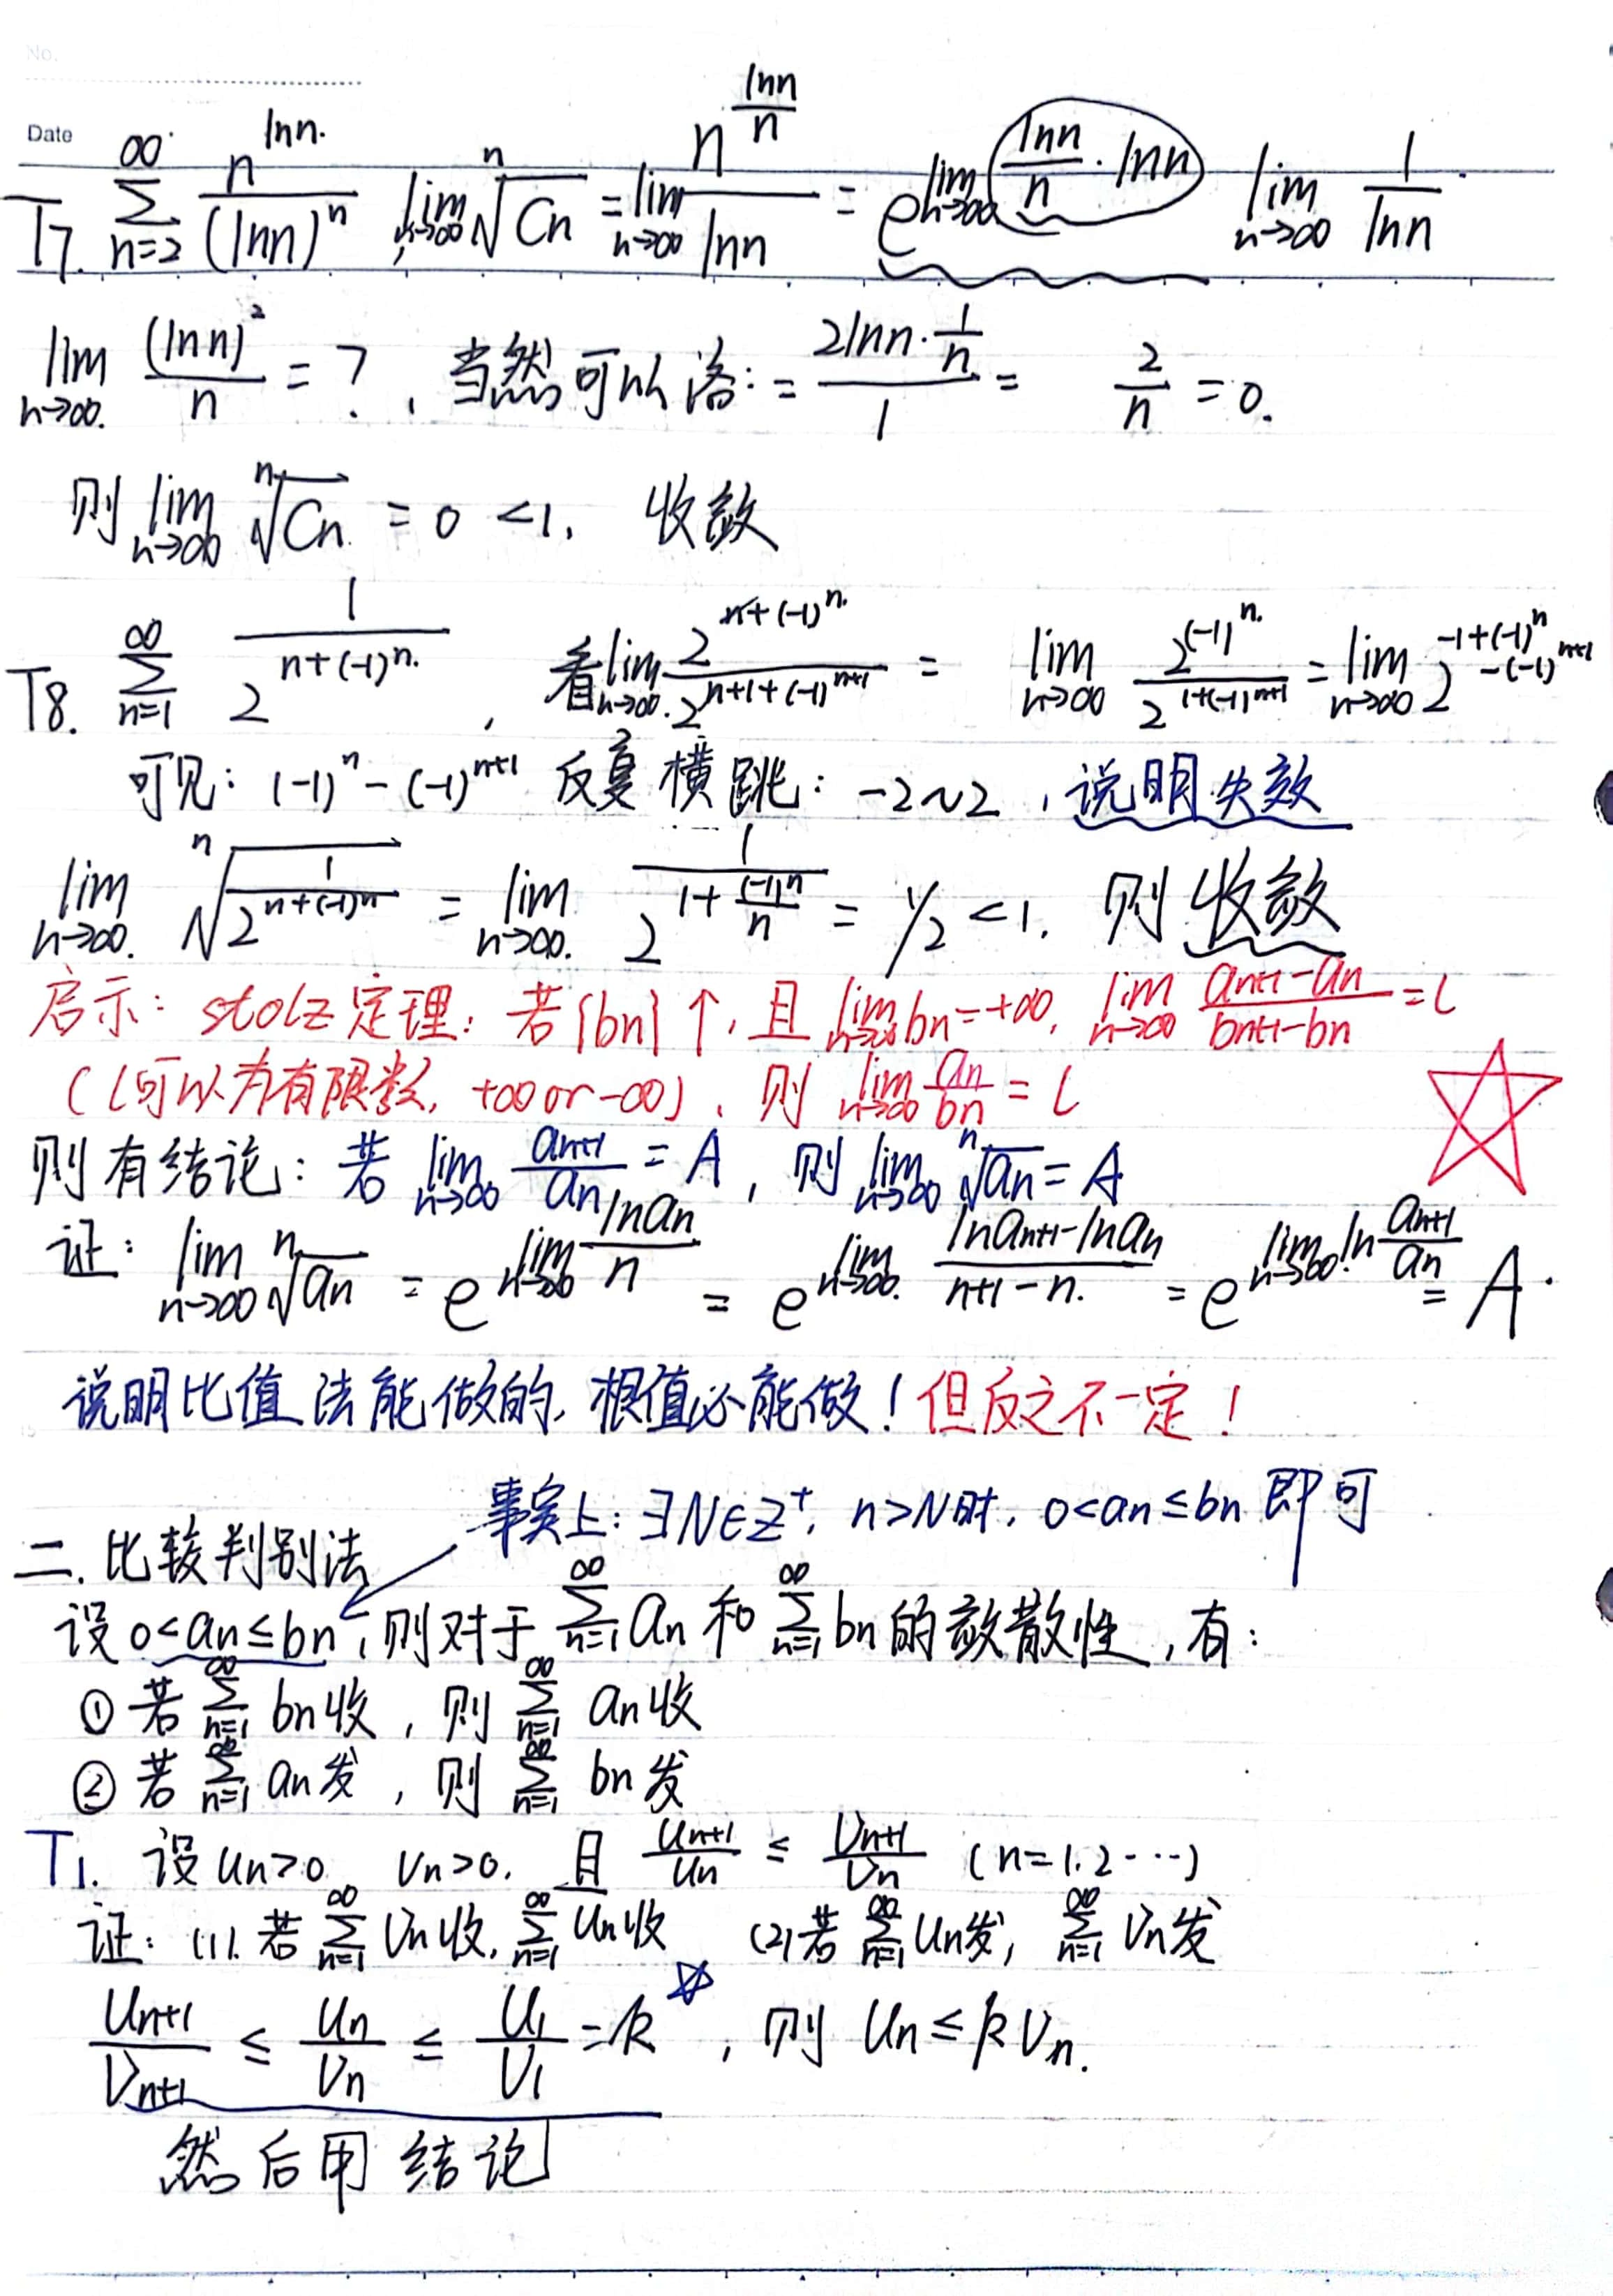 No.
Date
T7. $\sum_{n=2}^{\infty} \frac{n^{\ln n}}{(\ln n)^n}$ $\lim_{n\to\infty} \sqrt[n]{C_n} = \lim_{n\to\infty} \frac{n^{\frac{\ln n}{n}}}{\ln n} = e^{\lim_{n\to\infty} \frac{\ln n}{n} \cdot \ln n}$ $\lim_{n\to\infty} \frac{1}{\ln n}$
$\lim_{n\to\infty} \frac{(\ln n)^2}{n} = ?$, 当然可以洛: $= \frac{2\ln n \cdot \frac{1}{n}}{1} =$ $\frac{2}{n} = 0.$
则 $\lim_{n\to\infty} \sqrt[n]{C_n} = 0 < 1.$ 收敛
T8. $\sum_{n=1}^{\infty} \frac{1}{2^{n+(-1)^n}}$, 看 $\lim_{n\to\infty} \frac{2^{n+(-1)^n}}{2^{n+1+(-1)^{n+1}}} = \lim_{n\to\infty} \frac{2^{(-1)^n}}{2^{1+(-1)^{n+1}}} = \lim_{n\to\infty} 2^{-1+(-1)^n-(-1)^{n+1}}$
可见: $(-1)^n - (-1)^{n+1}$ 反复横跳: -2~2, 说明失效
$\lim_{n\to\infty} \sqrt[n]{\frac{1}{2^{n+(-1)^n}}} = \lim_{n\to\infty} \frac{1}{2^{1+\frac{(-1)^n}{n}}} = 1/2 < 1.$ 则收敛
启示: stolz定理: 若{bn}↑, 且 $\lim_{n\to\infty} b_n = +\infty$, $\lim_{n\to\infty} \frac{a_{n+1}-a_n}{b_{n+1}-b_n} = l$
(l可以为有限数, +∞ or -∞), 则 $\lim_{n\to\infty} \frac{a_n}{b_n} = l$
则有结论: 若 $\lim_{n\to\infty} \frac{a_{n+1}}{a_n} = A$, 则 $\lim_{n\to\infty} \sqrt[n]{a_n} = A$
证: $\lim_{n\to\infty} \sqrt[n]{a_n} = e^{\lim_{n\to\infty} \frac{\ln a_n}{n}} = e^{\lim_{n\to\infty} \frac{\ln a_{n+1}-\ln a_n}{n+1-n}} = e^{\lim_{n\to\infty} \ln \frac{a_{n+1}}{a_n}} = A.$
说明比值法能做的, 根值必能做! 但反之不一定!
事实上: ∃N∈Z⁺, n>N时, 0<an≤bn 即可
二. 比较判别法
设 0<an≤bn, 则对于 $\sum_{n=1}^{\infty} a_n$ 和 $\sum_{n=1}^{\infty} b_n$ 的敛散性, 有:
① 若 $\sum_{n=1}^{\infty} b_n$ 收, 则 $\sum_{n=1}^{\infty} a_n$ 收
② 若 $\sum_{n=1}^{\infty} a_n$ 发, 则 $\sum_{n=1}^{\infty} b_n$ 发
T1. 设 un>0 vn>0. 且 $\frac{u_{n+1}}{u_n} \le \frac{v_{n+1}}{v_n}$ (n=1.2⋯)
证: (1). 若 $\sum_{n=1}^{\infty} v_n$ 收, $\sum_{n=1}^{\infty} u_n$ 收 (2) 若 $\sum_{n=1}^{\infty} u_n$ 发, $\sum_{n=1}^{\infty} v_n$ 发
$\frac{u_{n+1}}{v_{n+1}} \le \frac{u_n}{v_n} \le \frac{u_1}{v_1} = k$, 则 $u_n \le k v_n.$
然后用结论